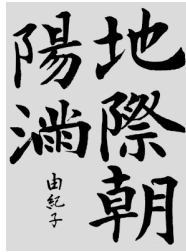 地際朝
陽満
由紀子